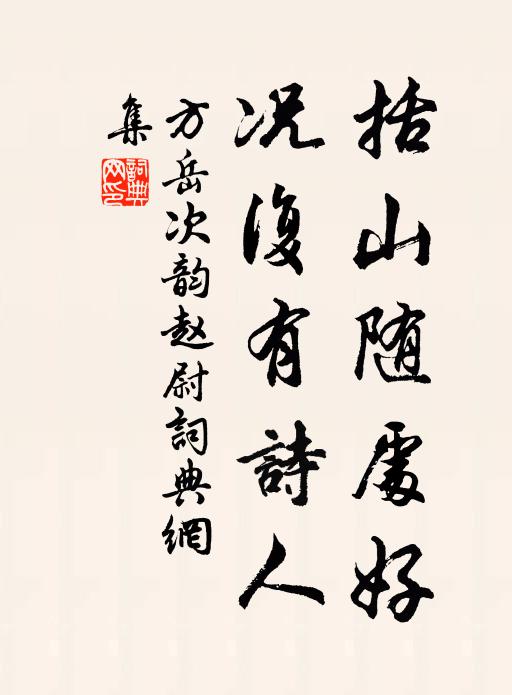 括山随處好
况復有詩人
方岳次韵赵尉詞典網
集
詞典網印